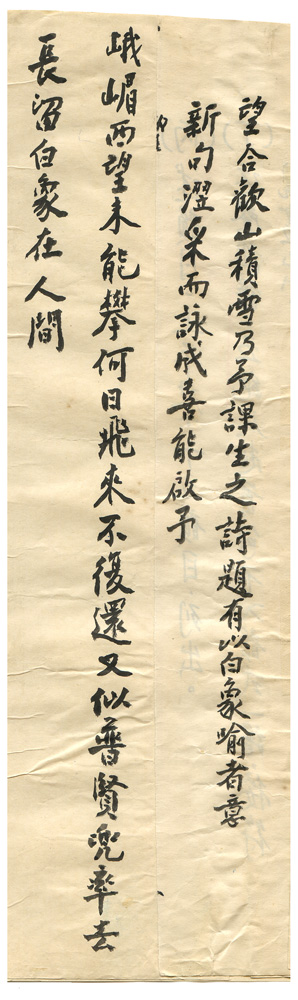 望合歡山積雪乃予課生之詩題有以白象喻者意
新句澀采而詠成喜能啟予
峨嵋西望未能攀何日飛來不復還又似普賢兜率去
長留白象在人間